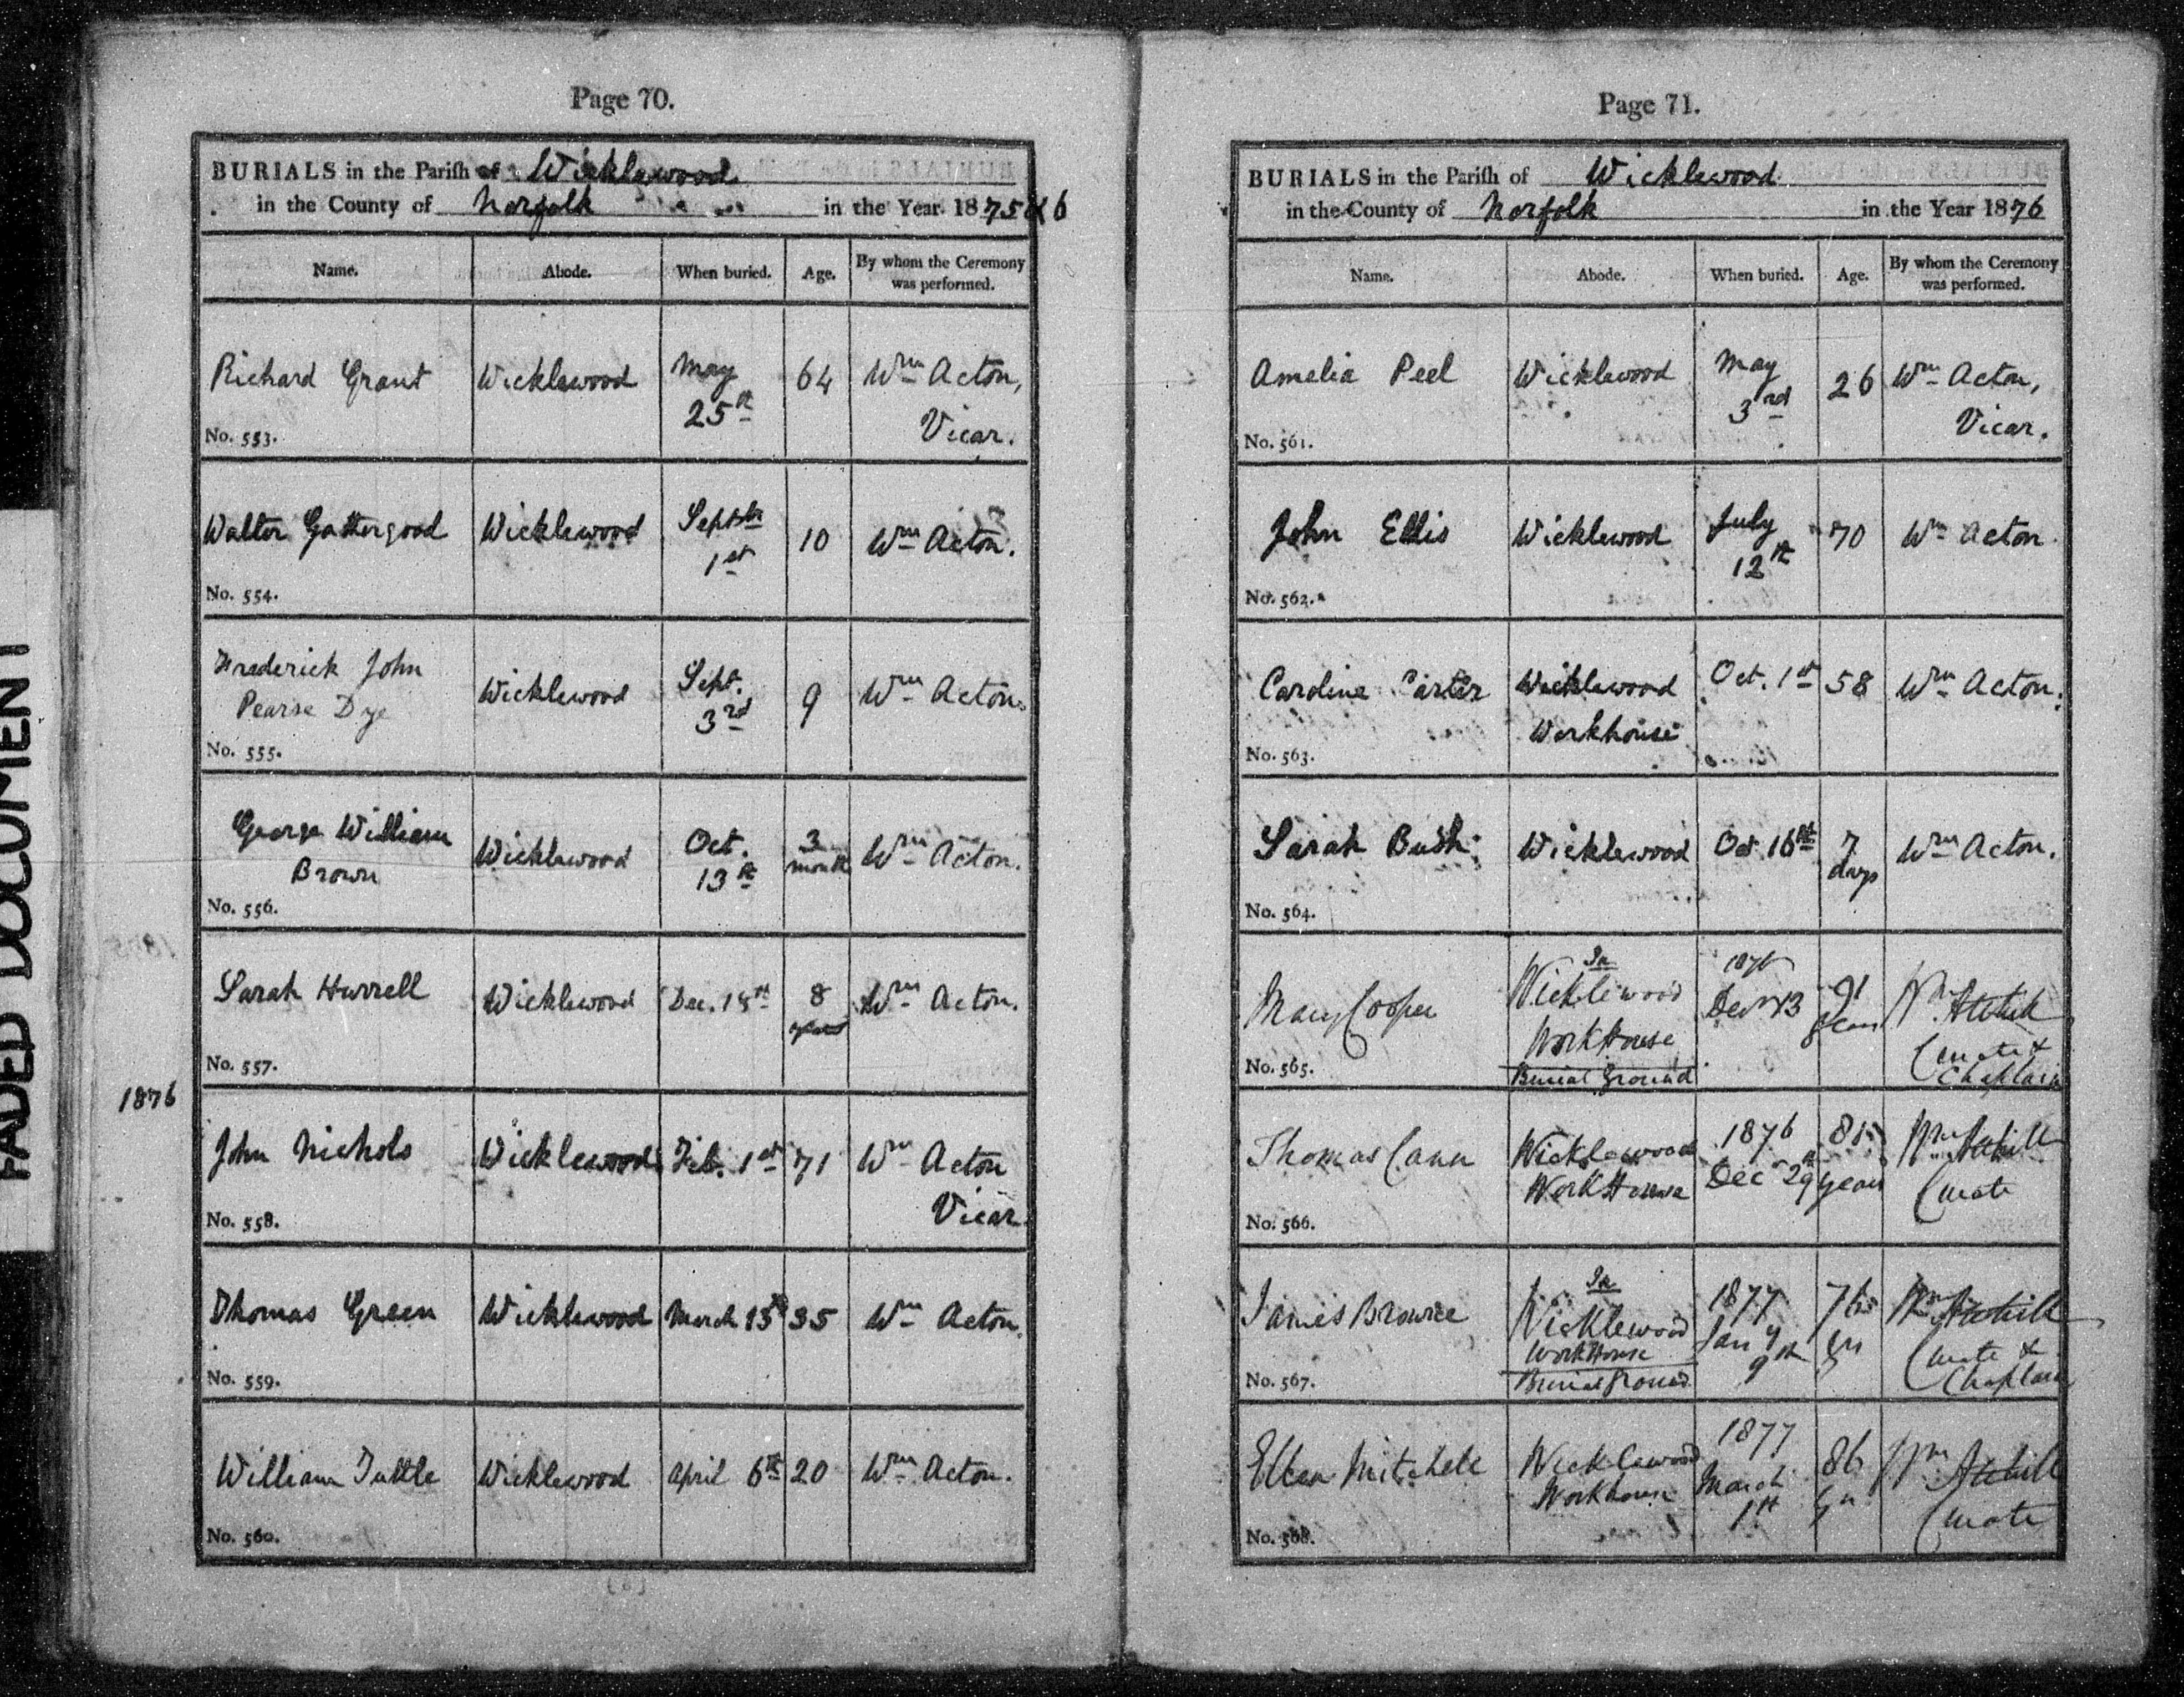 FADED DOCUMENT
Page 70.
BURIALS in the Parish of Wicklewood
in the County of Norfolk in the Year 1875 & 6
Name. Abode. When buried. Age. By whom the Ceremony was performed.
Richard Grant Wicklewood May 25th 64 Wm Acton, Vicar.
No. 553.
Walter Gathergood Wicklewood Septbr 1st 10 Wm Acton.
No. 554.
Frederick John Pearse Dye Wicklewood Sept. 3rd 9 Wm Acton.
No. 555.
George William Brown Wicklewood Oct. 13th 3 month Wm Acton.
No. 556.
Sarah Hurrell Wicklewood Dec. 18th 8 years Wm Acton.
No. 557.
1876
John Nichols Wicklewood Feb. 1st 71 Wm Acton Vicar.
No. 558.
Thomas Green Wicklewood March 15th 35 Wm Acton.
No. 559.
William Tuttle Wicklewood April 6th 20 Wm Acton.
No. 560.
Page 71.
BURIALS in the Parish of Wicklewood
in the County of Norfolk in the Year 1876
Name. Abode. When buried. Age. By whom the Ceremony was performed.
Amelia Peel Wicklewood May 3rd 26 Wm Acton, Vicar.
No. 561.
John Ellis Wicklewood July 12th 70 Wm Acton.
No. 562.
Caroline Carter Wicklewood Workhouse Oct. 1st 58 Wm Acton.
No. 563.
Sarah Bush Wicklewood Oct 16th 7 days Wm Acton.
No. 564.
Mary Cooper In Wicklewood WorkHouse Burial Ground 1876 Decr 13 91 years Wm Curate & Chaplain
No. 565.
Thomas Cann Wicklewood WorkHouse 1876 Dec 29th years Wm Curate
No. 566.
James Browne In Wicklewood WorkHouse Burial Ground 1877 Jany 9th 76 yrs Wm Curate & Chaplain
No. 567.
Ellen Mitchell Wicklewood Workhouse 1877 March 1st 86 yrs Wm Curate
No. 568.